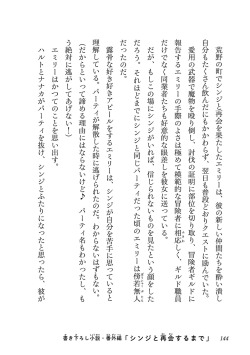 荒野の町でシンジと再会を果たしたエミリーは、彼の新しい仲間たちを酔い潰し
自分もたくさん飲んだにもかかわらず、翌日も普段どおりクエストに励んでいた。
愛用の武器で魔物を殴り倒し、討伐の証明に部位を切り取り、冒険者ギルドに
報告するエミリーの手際のよさは極めて模範的な冒険者に相応しく、ギルド職員
だけでなく同業者たちも好意的な眼差しを彼女に送っている。
だが、もしこの場にシンジがいれば、信じられないものを見たという顔をした
だろう。それほどまでにシンジと同じパーティだった頃のエミリーは傍若無人
だったのだ。
露骨な好き好きアピールをするエミリーは、シンジが自分を苦手に思っていると
理解している。パーティが解散した時に逃げられたのだ、わからいでか。
(だからといって諦める理由にはならないけど♪ パーティ名もわかったし、も
う絶対に逃がしてあげない!)
エミリーはかつてのことを思い出す。
ハルトとナナカがパーティを抜け、シンジとふたりになったと思ったら、彼が
書き下ろし小説・番外編「シンジと再会するまで」 144